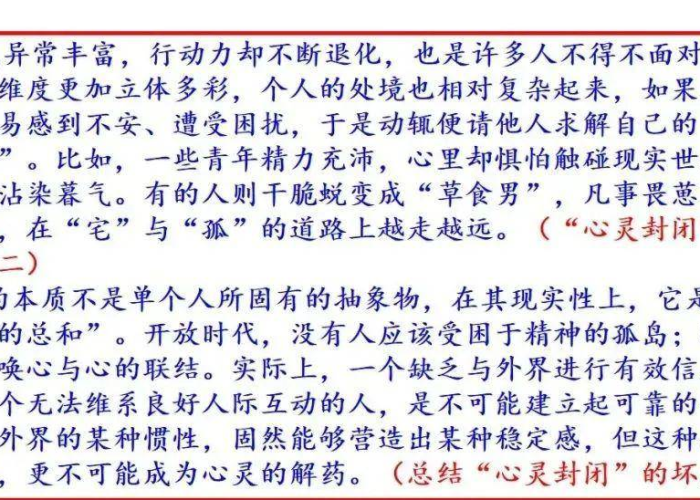 异常丰富，行动力却不断退化，也是许多人不得不面对
维度更加立体多彩，个人的处境也相对复杂起来，如果
易感到不安、遭受困扰，于是动辄便请他人求解自己的
”。比如，一些青年精力充沛，心里却惧怕触碰现实世
沾染暮气。有的人则干脆蜕变成“草食男”，凡事畏葸
，在“宅”与“孤”的道路上越走越远。（“心灵封闭
二）
的本质不是单个人所固有的抽象物，在其现实性上，它是
的总和”。开放时代，没有人应该受困于精神的孤岛；
唤心与心的联结。实际上，一个缺乏与外界进行有效信
个无法维系良好人际互动的人，是不可能建立起可靠的
外界的某种惯性，固然能够营造出某种稳定感，但这种
，更不可能成为心灵的解药。（总结“心灵封闭”的坏